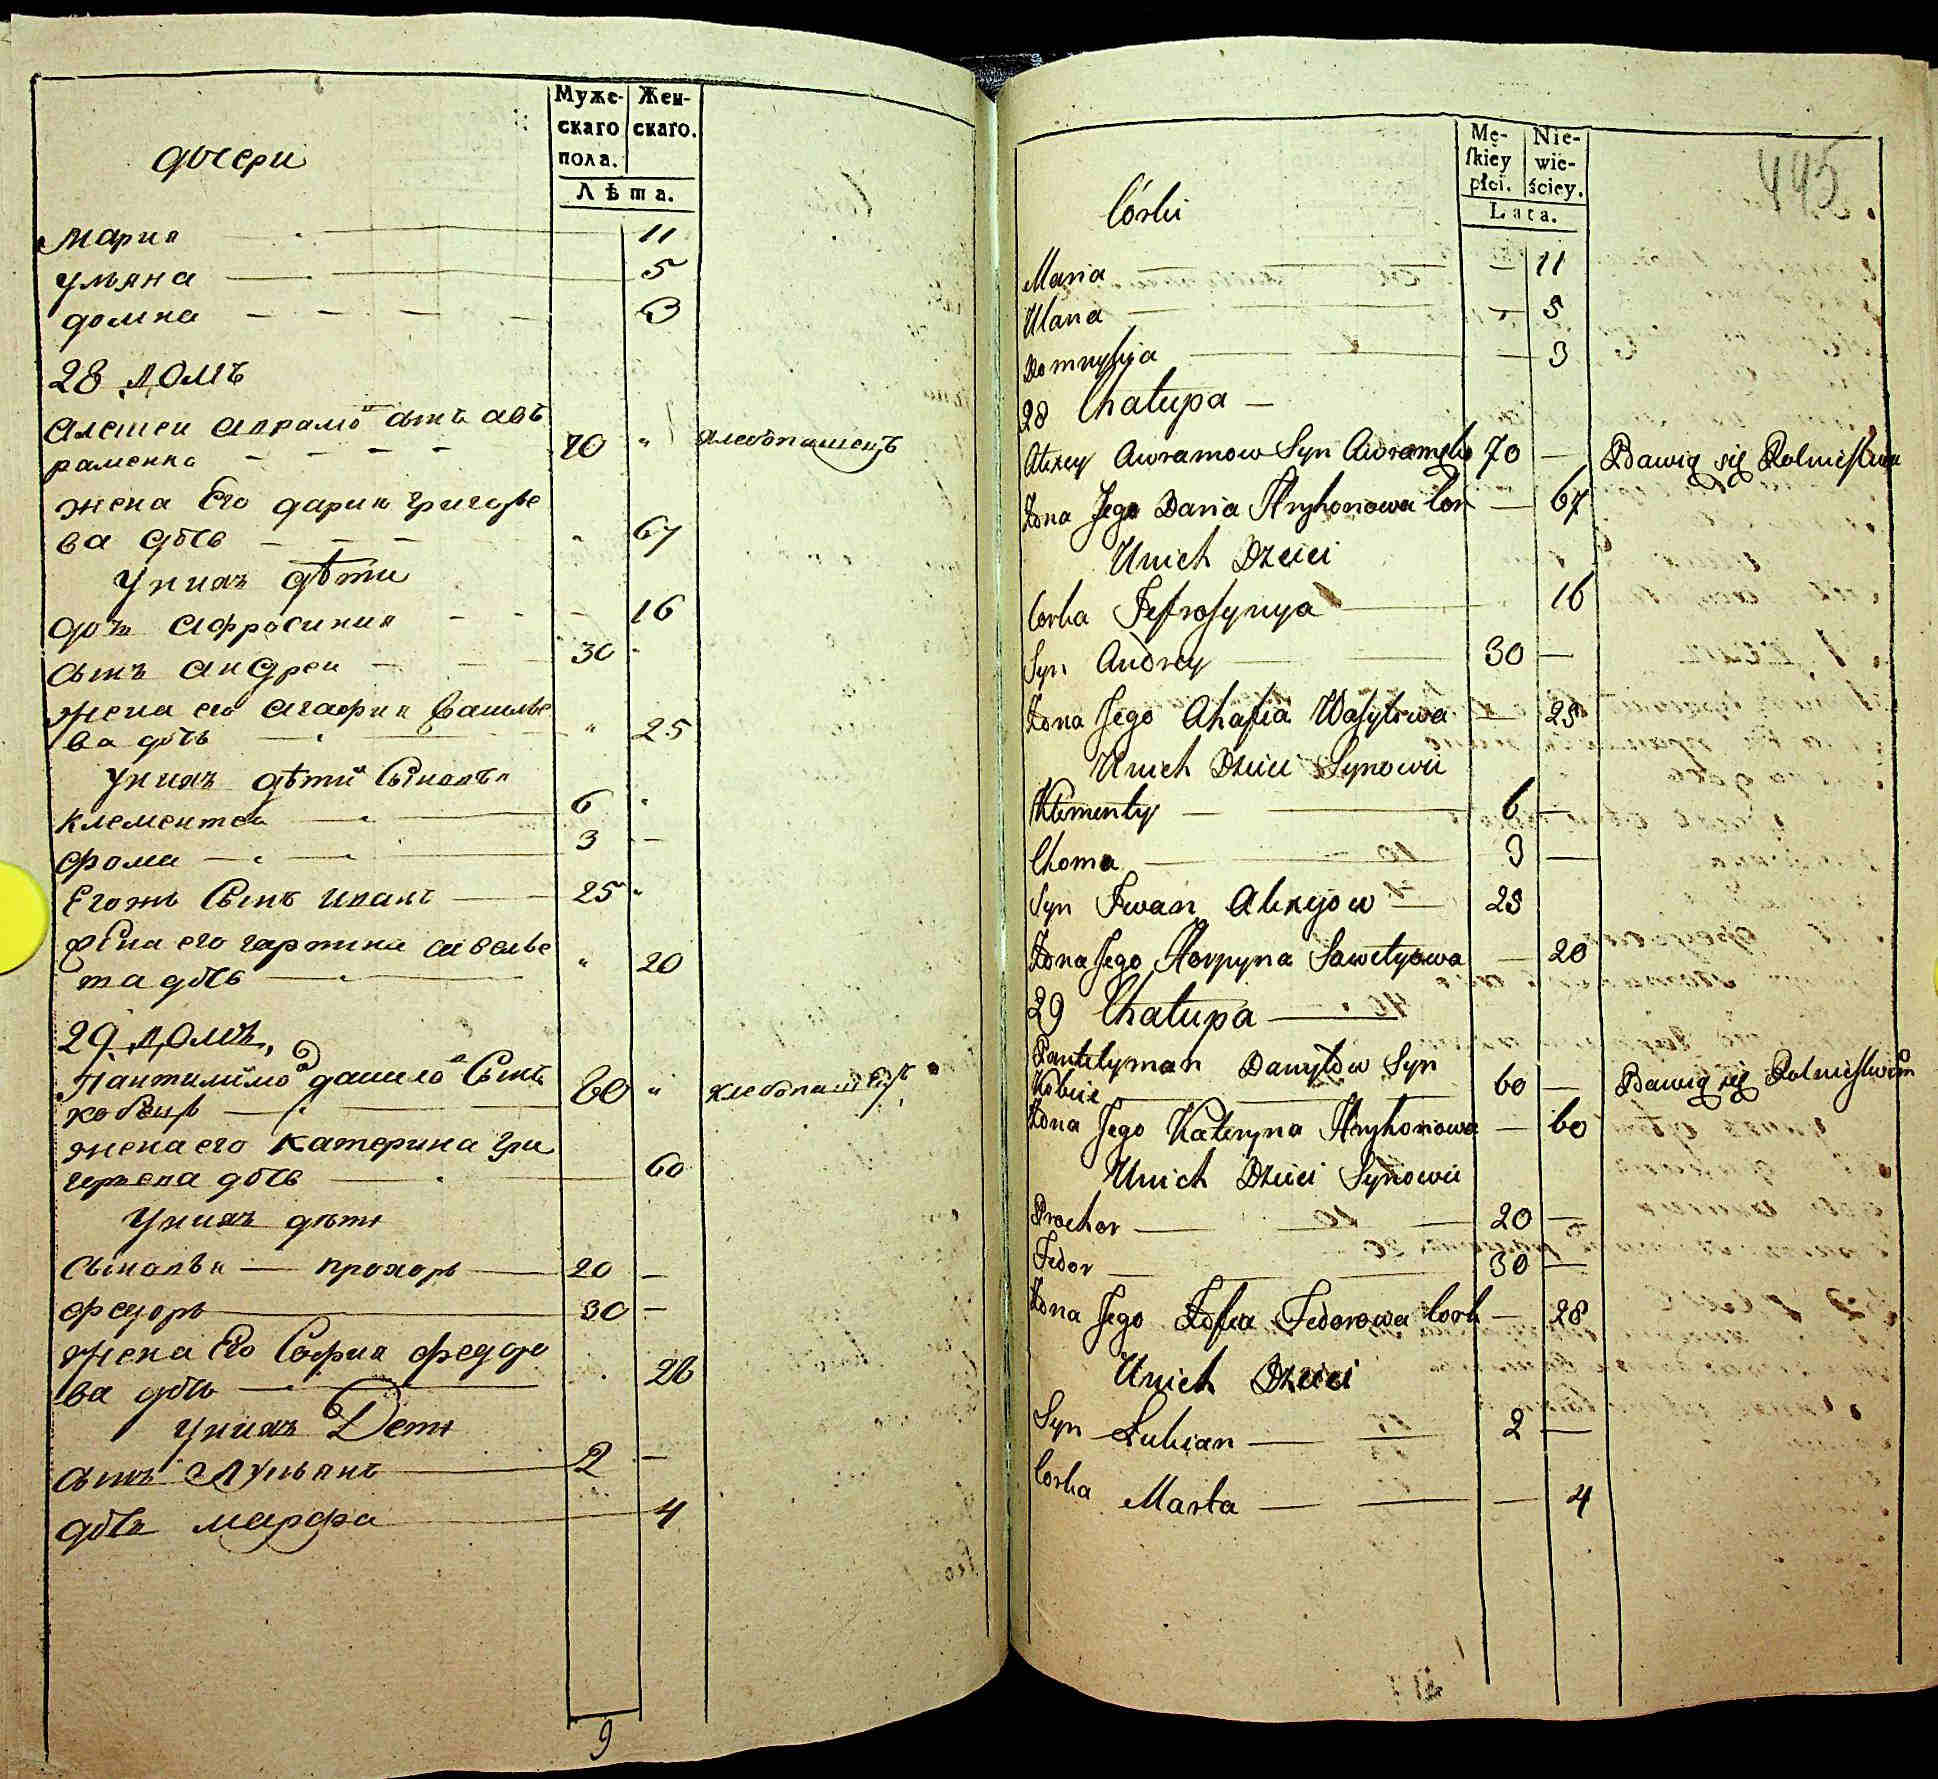 дочери
Муже- Жен-
скаго скаго.
пола.
Лѣта.
Мария 11
Ульяна 5
домна 3
28 домъ
Алексеи Аврамовъ сынъ Авъ
раменко 70 " хлебопашецъ
жена Его дария григорье
ва дочь " 67
У них дѣти
дочь Афросиния 16
сынъ Андреи 30 "
жена его Агафия василье
ва дочь " 25
У них дѣти Сыновья
Клементеи 6 "
фома 3 —
Его жъ Сынъ Иванъ 25 "
жена его гарпина савелье
ва дочь " 20
29 домъ
Пантилимо данило Сынъ
кобецъ 60 " хлебопашецъ
жена его катерина гри
горьева дочь 60
У них дѣти
Сыновья — прохоръ 20 —
федоръ 30 —
жена Его София федоро
ва дочь 28
У них Дети
сынъ Лукьянъ 2 —
дочь марфа 4
9
445
Mę- Nie-
ſkiey wie-
płci. ściey.
Lata.
Córki
Maria — 11
Ulana — 5
— 3
28 Chałupa —
Alexey Awramow Syn 70 — Bawią się Rolnictwem
Zona Jego Daria Hryhorowa Cor — 67
Unich Dzieci
Corka Jefrosynya 16
Syn Andrey 30 —
Zona Jego Ahafia Wasylowa — 25
Unich Dzieci Synowie
Klementy 6 —
Choma 3 —
Syn Iwan Alexyow 25
Zona Jego Horpyna Sawelyowa — 20
29 Chałupa
Pantelyman Danyłow Syn
Kobiec 60 — Bawią się Rolnictwem
Zona Jego Kateryna Hryhorowa — 60
Unich Dzieci Synowie
Prochor 20 —
Fedor 30 —
Zona Jego Zofia Fedorowa Cork — 28
Unich Dzieci
Syn Łukian 2 —
Corka Marta — 4